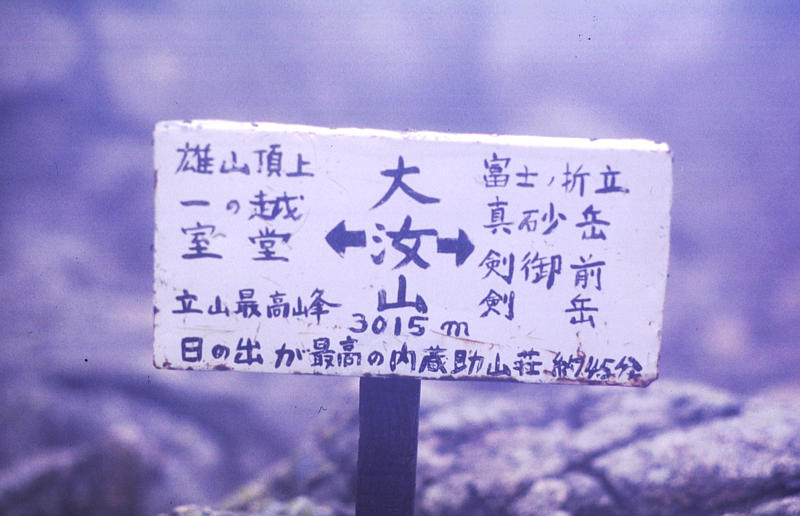 雄山頂上
一の越
室堂
立山最高峰
大汝山
3015m
富士ノ折立
真砂岳
剣御前
剣岳
日の出が最高の内蔵助山荘 約45分